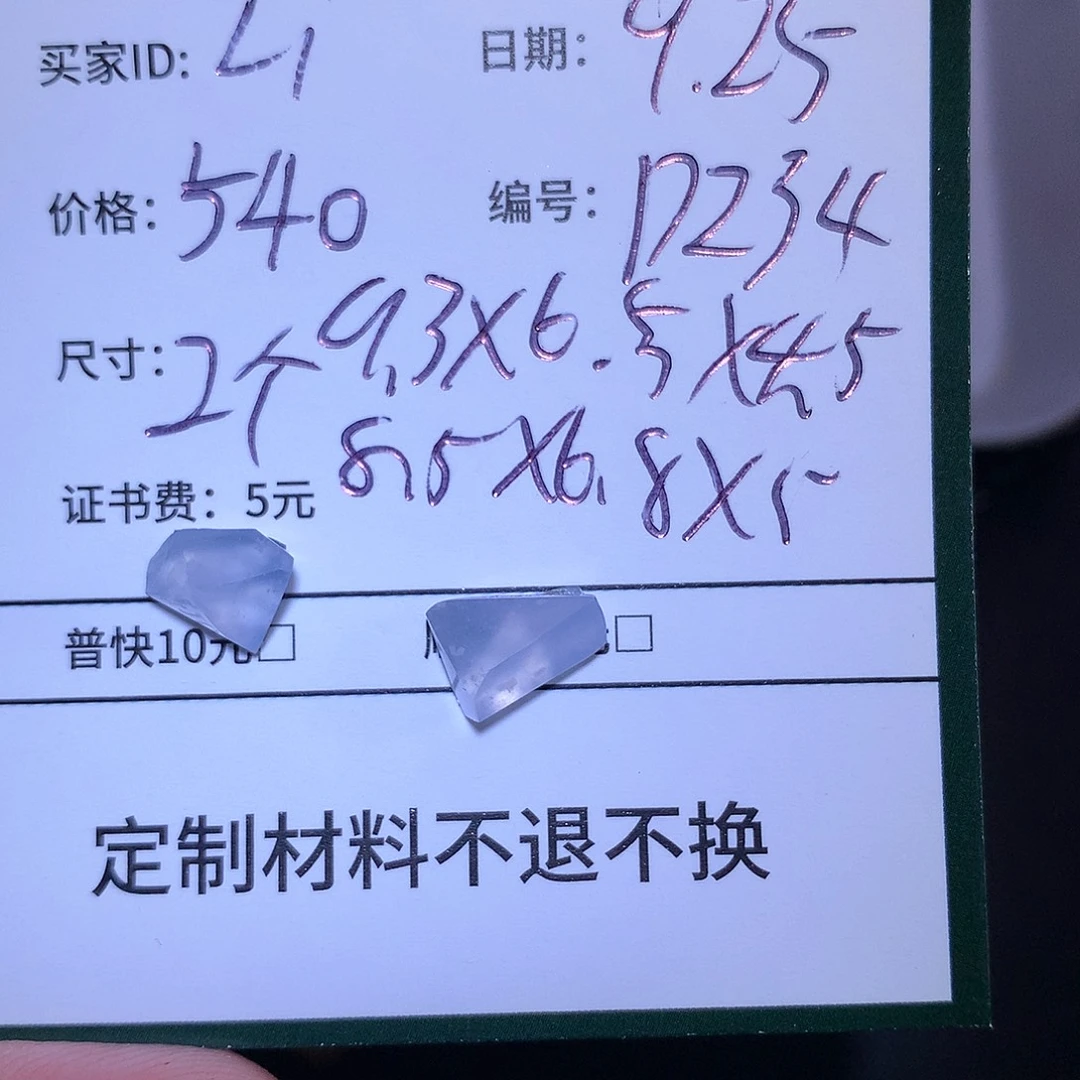 买家ID: Li 日期: 9.25
价格: 540 编号: D234
尺寸: 2个 9.3X6.5X4.5
8.5X6.8X5
证书费: 5元
普快10元□ □
定制材料不退不换